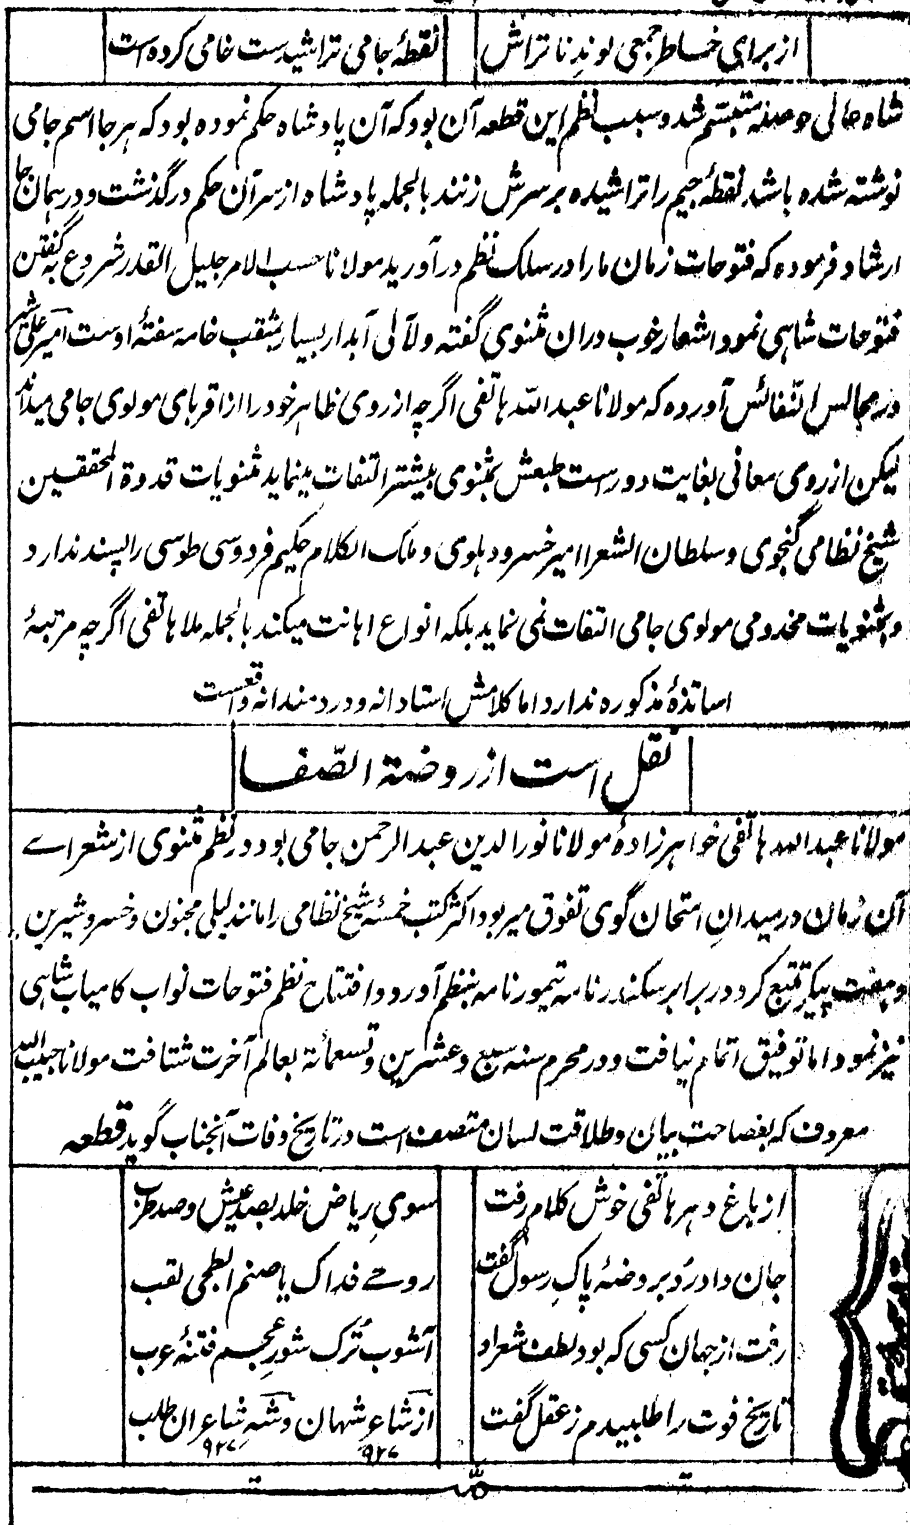 از برای خاطر جمعی لوندِ ناتراش نقطهٔ جامی تراشیدست خامی کرده است
شاه عالی حوصله متبسّم شد و سبب نظم این قطعه آن بود که آن پادشاه حکم نموده بود که هر جا اسم جامی
نوشته شده باشد نقطهٔ جیم را تراشیده بر سرش زنند بالجمله پادشاه از سر آن حکم درگذشت و در همان جا
ارشاد فرموده که فتوحات زمان ما را در سلک نظم در آورید مولانا حسب الامر جلیل القدر شروع به گفتن
فتوحات شاهی نمود اشعار خوب دران مثنوی گفته و لآلی آبدار بسیار بثقب خامه سفتهٔ اوست امیر علی شیر
در مجالس النّفائس آورده که مولانا عبد اللہ ہاتفی اگرچه از روی ظاہر خود را از اقربای مولوی جامی میداند
لیکن از روی معانی بغایت دورست طبعش بمثنوی بیشتر التفات مینماید مثنویات قدوة المحققین
شیخ نظامی گنجوی و سلطان الشعرا امیر خسرو دہلوی و ملک الکلام حکیم فردوسی طوسی را پسند ندارد
و بمثنویات مخدومی مولوی جامی التفات نمی نماید بلکه انواع اہانت میکند بالجمله ملا ہاتفی اگرچه مرتبهٔ
اساتذهٔ مذکوره ندارد اما کلامش استادانه و دردمندانه واقعست
نقل است از روضة الصّفا
مولانا عبد اللہ ہاتفی خواہرزادهٔ مولانا نور الدین عبد الرحمن جامی بود در نظم مثنوی از شعراے
آن زمان در میدانِ امتحان گوی تفوق میربود اکثر کتب خمسهٔ شیخ نظامی را مانند لیلی مجنون و خسرو شیرین
و ہفت پیکر تتبع کرد در برابر سکندر نامه تیمور نامه بنظم آورد و افتتاح نظم فتوحات نواب کامیاب شاہی
نیز نمود اما توفیق اتمام نیافت و در محرم سنه سبع و عشرین و تسعمائة بعالم آخرت شتافت مولانا حبیب اللہ
معروف که بفصاحت بیان و طلاقت لسان متصف است در تاریخ وفات آنجناب گوید قطعه
از باغ دہر ہاتفی خوش کلام رفت سوی ریاض خلد بصد عیش و صد طرب
جان داد رو بروضهٔ پاک رسول گفت روحے فداک یا صنم ابطحی لقب
رفت از جہان کسی که بود لطف شعر او آشوب تُرک شورِ عجم فتنهٔ عرب
تاریخ فوت را طلبیدم ز عقل گفت از شاعرِ شہان و شہِ شاعران طلب
۹۲۷ ۹۲۷